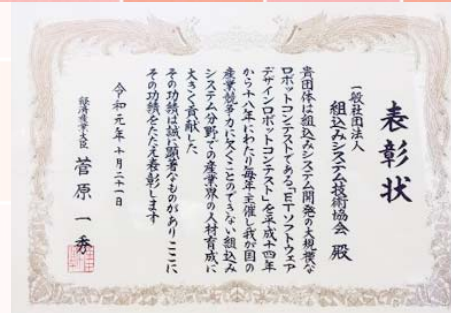 表彰状
一般社団法人
組込みシステム技術協会 殿
貴団体は組込みシステム開発の大規模な
ロボットコンテストである「ETソフトウェア
デザインロボットコンテスト」を平成十四年
から十八年にわたり毎年主催し我が国の
産業競争力に欠くことのできない組込み
システム分野での産業界の人材育成に
大きく貢献した
その功績は誠に顕著なものがありここに
その功績をたたえ表彰します
令和元年十月二十一日
経済産業大臣 菅原一秀